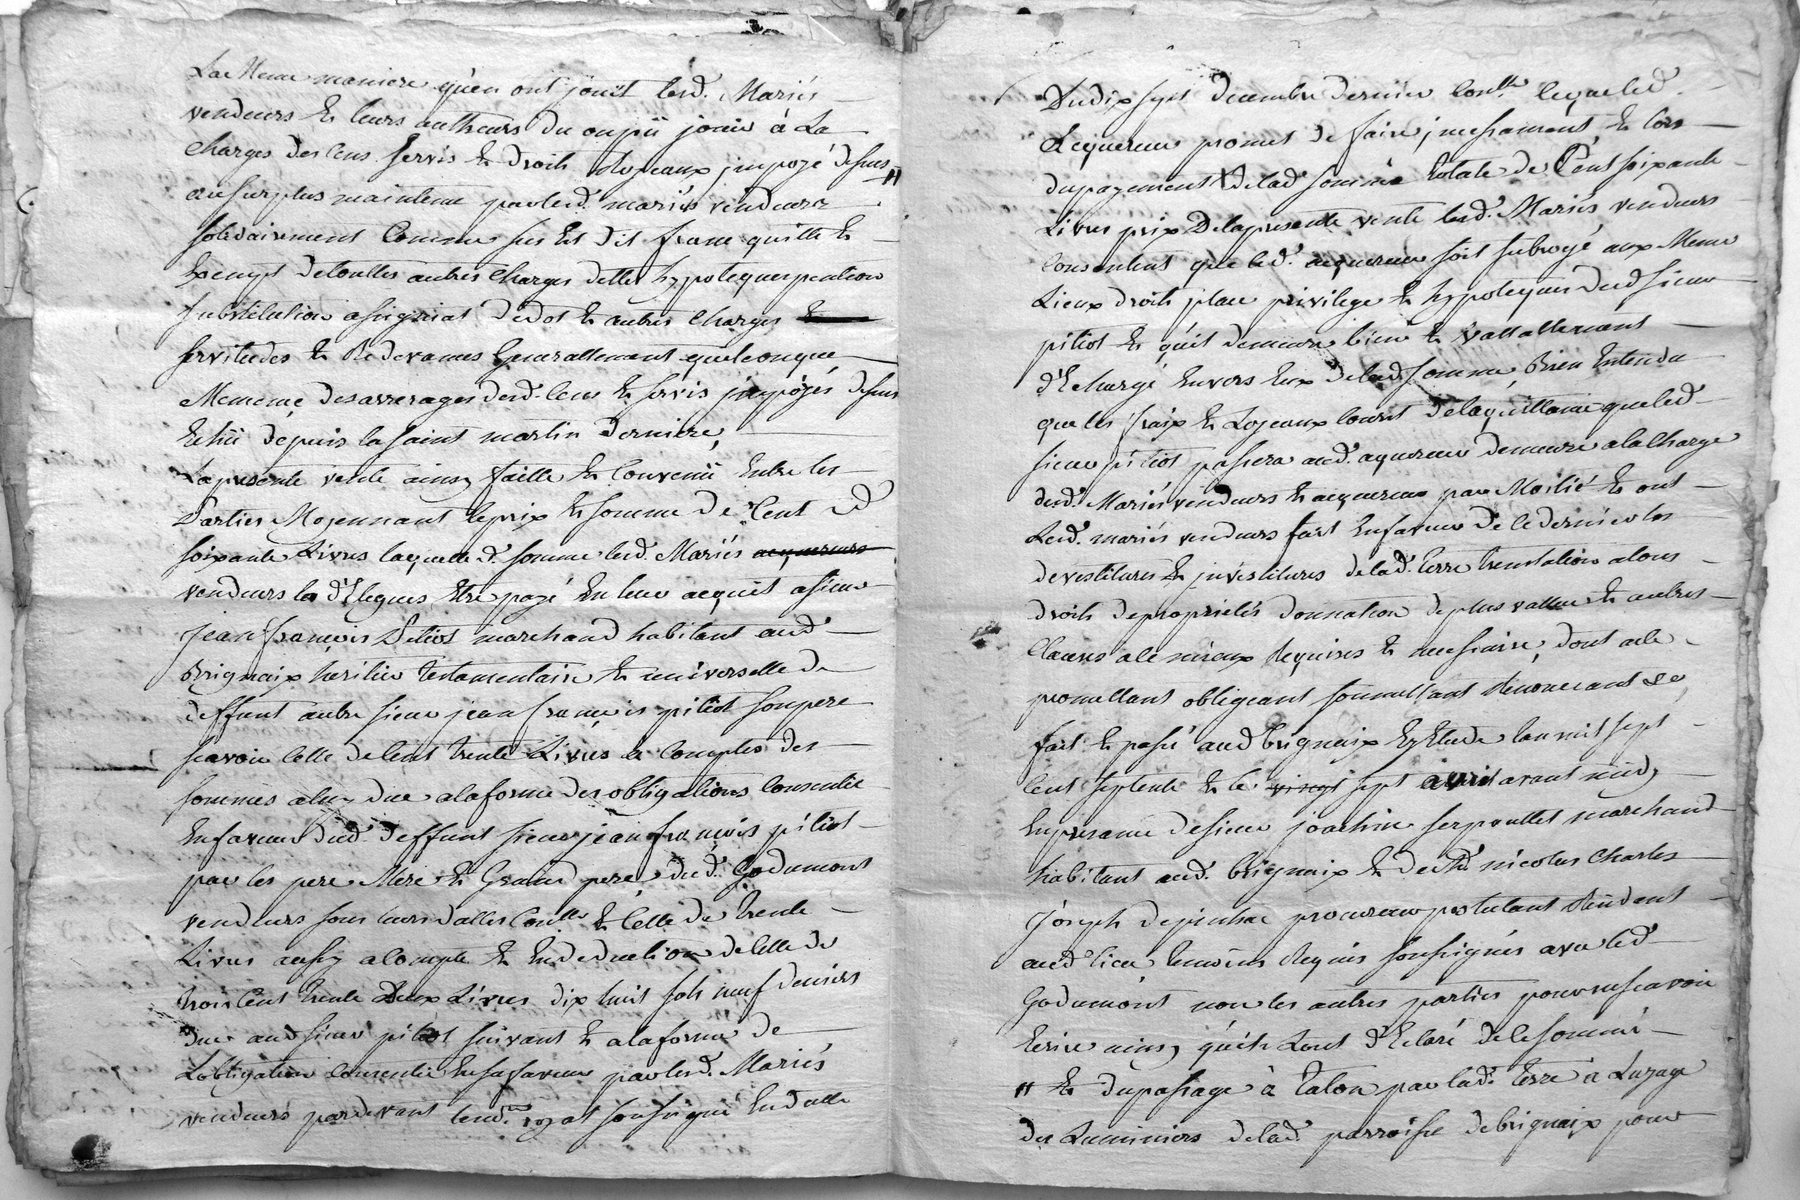 La Meme maniere qu'en ont jouït lesd. Mariés
vendeurs et leurs autheurs du oupü jouir à La
charges des Cens servis et droits loyeaux jmpozé dessus "
au surplus maintenue par lesd. mariés vendeurs
solidairement Comme sus est dit franc quitte et
Exempt de touttes autres charges dettes hypoteques pention
substitution assignat de dot et autres charges
servitudes et Redevances Generallement quelconque
Meme des arrerages desd. Cens et servis jmpozés dessus
Echü depuis la saint martin derniere,
La presente vente ainsy faitte et Convenü Entre les
Parties Moyennant le prix et somme de Cent
soixante Livres laquelle d. somme lesd. Mariés acquereurs
vendeurs la d'Elegues Etre payé En leur acquit a sieur
jean françois Pitiot marchand habitant aud.
Brignaix heritier testamentaire et universelle de
deffunt autre sieur jean françois pitiot son pere
scavoir Celle de Cent trente Livres a Comptes des
sommes a luy due a la forme des obligations Consentie
En faveur dud. deffunt sieur jean françois pitiot
par les pere Mere et Grand pere dud. Godumont
vendeurs sous leurs dattes et Celle de trente
Livres aussy a Compte et En deduction de Celle de
trois Cent trente Deux Livres dix huit sols neuf deniers
due aud sieur pitiot suivant et a la forme de
L'obligation Consentie En sa faveur par lesd. Mariés
vendeurs pardevant soussigné En datte
Du dix sept decembre dernier lequel led.
acquereur promet de faire jncessament et lors
du payement de lad somme totale de Cent soixante
Livres prix De la presente vente lesd. Mariés vendeurs
Consentent que led. acquereur soit subrogé aux Meme
Lieux droits place privilege et hypoteques dud sieur
pitiot et qu'il demeure bien et vallablement
d'Echargé Envers Eux de lad somme, Bien Entendu
que les fraix et Loyeaux Couts de la quittance que led.
sieur pitiot passera aud. aquereur demeure a la Charge
desd. Mariés vendeurs et acquereur par Moitié et ont
Lesd. mariés vendeurs fait En faveur de Ce dernier les
devestitures Et jnvestitures de lad. terre translation a tous
droits de proprietés donnation de plus vallue et autres
Clauses a Ce mieux Requises et necessaire, dont acte
promettant obligeant soumettant Renoncant &c
fait et passé aud brignaix Ez Etude l'an mil sept
Cent septente et le vingt sept avril avant midy
En presance de sieur joachim serpouttet marchand
habitant aud. brignaix et de Me. nicolas Charles
Joseph procureur postulant Résidant
aud lieu temoins Requis soussignés avec led.
Godumont non les autres parties pour ne scavoir
Ecrire ainsy qu'ils L'ont d'Eclaré de Ce sommé
" et du passage à talon par lad. terre a L'uzage
des Luminiers de lad. parroisse de brignaix pour